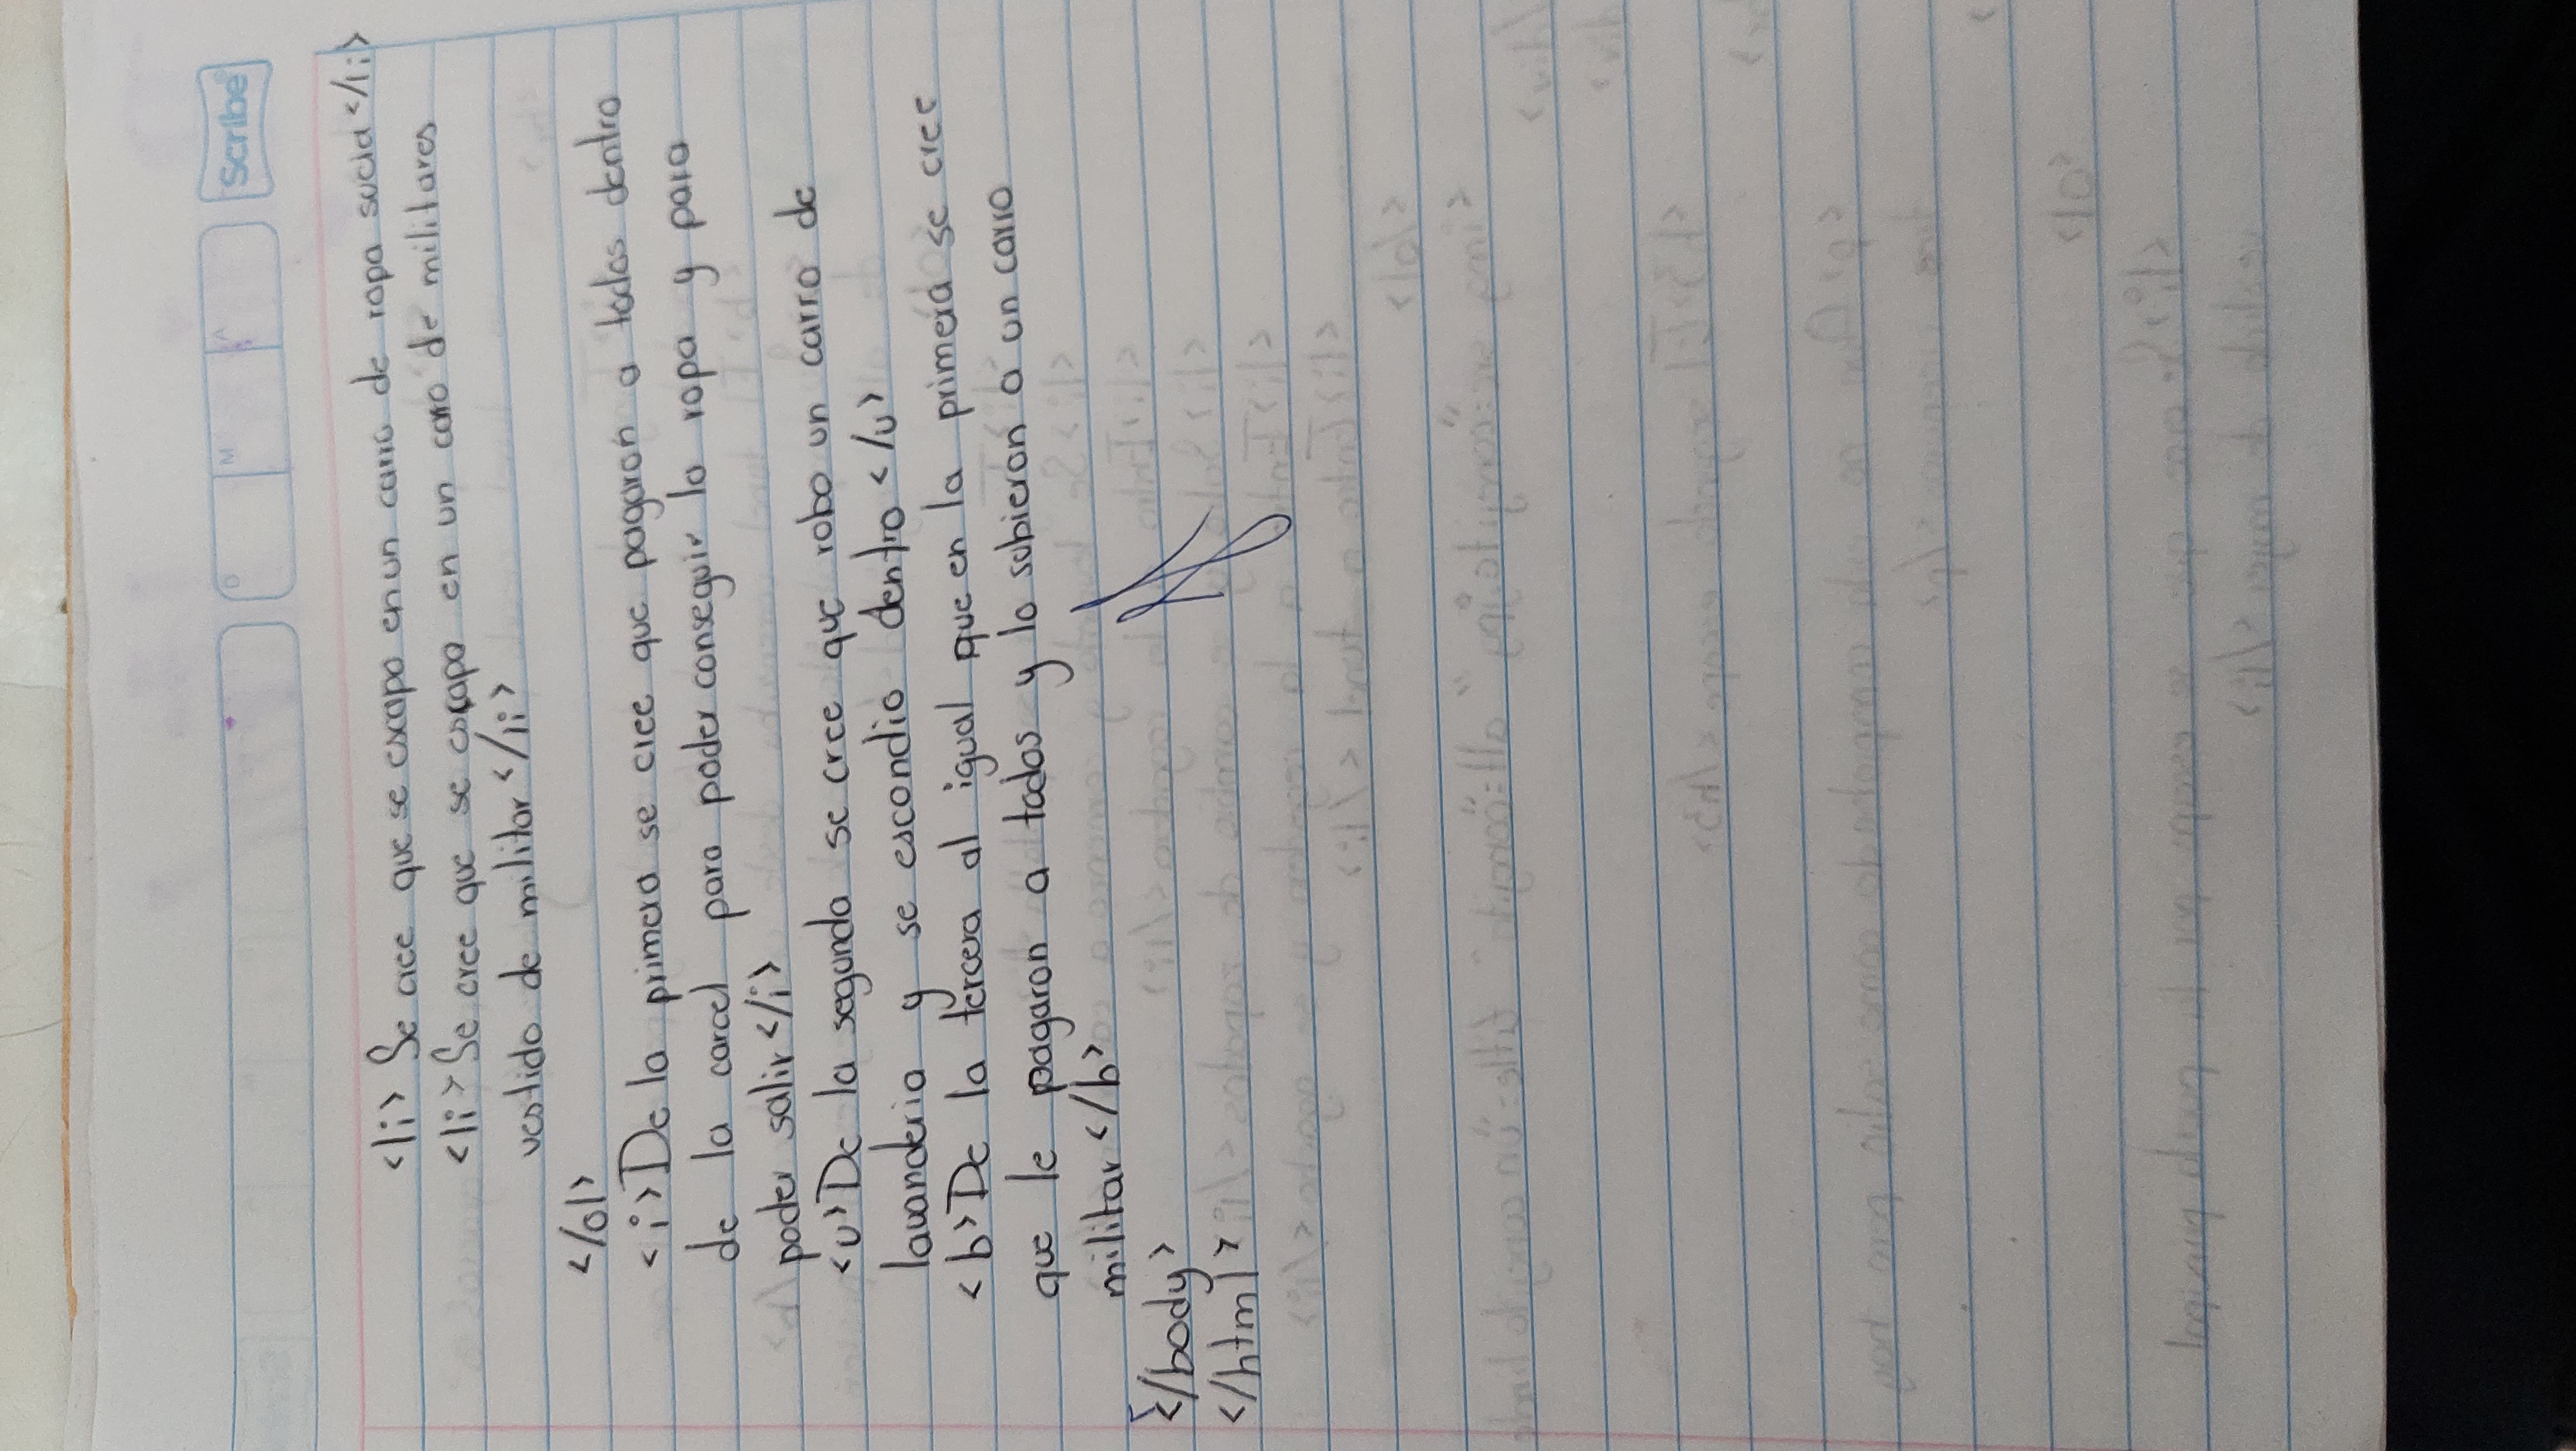 D M A Scribe
<li> Se cree que se escapo en un carro de ropa sucia </li>
<li> Se cree que se escapo en un carro de militares
vestido de militar </li>
</ol>
<i> De la primera se cree que pagaron a todos dentro
de la carcel para poder conseguir la ropa y para
poder salir </i>
<u> De la segunda se cree que robo un carro de
lavanderia y se escondio dentro </u>
<b> De la tercera al igual que en la primera se cree
que le pagaron a todos y lo subieron a un carro
militar </b>
</body>
</html>